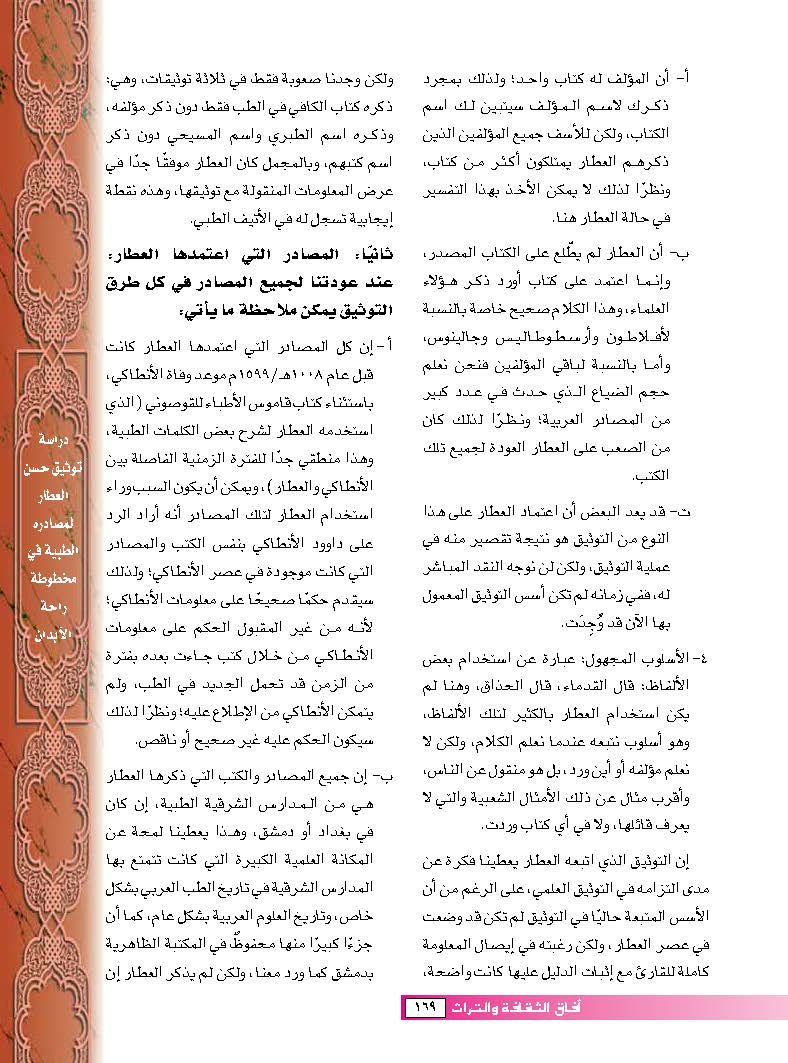 أ- أن المؤلف له كتاب واحد؛ ولذلك بمجرد
ذكرك لاسم المؤلف سيتبين لك اسم
الكتاب، ولكن للأسف جميع المؤلفين الذين
ذكرهم العطار يمتلكون أكثر من كتاب،
ونظرًا لذلك لا يمكن الأخذ بهذا التفسير
في حالة العطار هنا.
ب- أن العطار لم يطّلع على الكتاب المصدر،
وإنما اعتمد على كتاب أورد ذكر هؤلاء
العلماء، وهذا الكلام صحيح خاصة بالنسبة
لأفلاطون وأرسطوطاليس وجالينوس،
وأما بالنسبة لباقي المؤلفين فنحن نعلم
حجم الضياع الذي حدث في عدد كبير
من المصادر العربية؛ ونظرًا لذلك كان
من الصعب على العطار العودة لجميع تلك
الكتب.
ت- قد يعد البعض أن اعتماد العطار على هذا
النوع من التوثيق هو نتيجة تقصير منه في
عملية التوثيق، ولكن لن نوجه النقد المباشر
له، ففي زمانه لم تكن أسس التوثيق المعمول
بها الآن قد وُجِدَت.
٤- الأسلوب المجهول: عبارة عن استخدام بعض
الألفاظ: قال القدماء، قال الحذاق، وهنا لم
يكن استخدام العطار بالكثير لتلك الألفاظ،
وهو أسلوب نتبعه عندما نعلم الكلام، ولكن لا
نعلم مؤلفه أو أين ورد، بل هو منقول عن الناس،
وأقرب مثال عن ذلك الأمثال الشعبية والتي لا
يعرف قائلها، ولا في أي كتاب وردت.
إن التوثيق الذي اتبعه العطار يعطينا فكرة عن
مدى التزامه في التوثيق العلمي، على الرغم من أن
الأسس المتبعة حاليًا في التوثيق لم تكن قد وضعت
في عصر العطار، ولكن رغبته في إيصال المعلومة
كاملة للقارئ مع إثبات الدليل عليها كانت واضحة،
ولكن وجدنا صعوبة فقط في ثلاثة توثيقات، وهي:
ذكره كتاب الكافي في الطب فقط دون ذكر مؤلفه،
وذكره اسم الطبري واسم المسيحي دون ذكر
اسم كتبهم، وبالمجمل كان العطار موفقًا جدًا في
عرض المعلومات المنقولة مع توثيقها، وهذه نقطة
إيجابية تسجل له في الأثيف الطبي.
ثانيًا: المصادر التي اعتمدها العطار:
عند عودتنا لجميع المصادر في كل طرق
التوثيق يمكن ملاحظة ما يأتي:
أ- إن كل المصادر التي اعتمدها العطار كانت
قبل عام ١٠٠٨هـ/١٥٩٩م موعد وفاة الأنطاكي،
باستثناء كتاب قاموس الأطباء للقوصوني (الذي
استخدمه العطار لشرح بعض الكلمات الطبية،
وهذا منطقي جدًا للفترة الزمنية الفاصلة بين
الأنطاكي والعطار)، ويمكن أن يكون السبب وراء
استخدام العطار لتلك المصادر أنه أراد الرد
على داوود الأنطاكي بنفس الكتب والمصادر
التي كانت موجودة في عصر الأنطاكي؛ ولذلك
سيقدم حكمًا صحيحًا على معلومات الأنطاكي؛
لأنه من غير المقبول الحكم على معلومات
الأنطاكي من خلال كتب جاءت بعده بفترة
من الزمن قد تحمل الجديد في الطب، ولم
يتمكن الأنطاكي من الإطلاع عليه؛ ونظرًا لذلك
سيكون الحكم عليه غير صحيح أو ناقص.
ب- إن جميع المصادر والكتب التي ذكرها العطار
هي من المدارس الشرقية الطبية، إن كان
في بغداد أو دمشق، وهذا يعطينا لمحة عن
المكانة العلمية الكبيرة التي كانت تتمتع بها
المدارس الشرقية في تاريخ الطب العربي بشكل
خاص، وتاريخ العلوم العربية بشكل عام، كما أن
جزءًا كبيرًا منها محفوظٌ في المكتبة الظاهرية
بدمشق كما ورد معنا، ولكن لم يذكر العطار إن
دراسة
توثيق حسن
العطار
لمصادره
الطبية في
مخطوطة
راحة
الأبدان
آفاق الثقافة والتراث ١٦٩